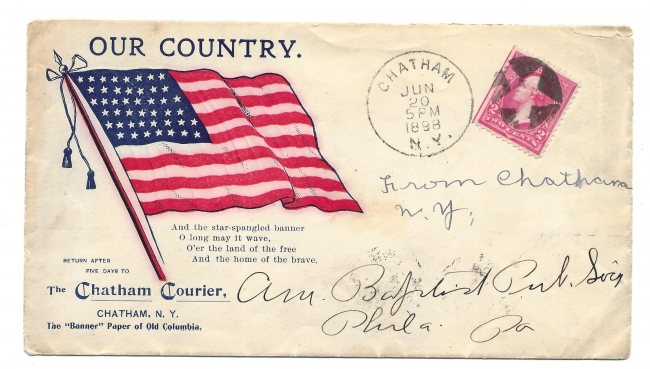 OUR COUNTRY.
CHATHAM
JUN
20
5 PM
1898
N.Y.
From Chatham
N.Y,
And the star-spangled banner
O long may it wave,
O'er the land of the free
And the home of the brave.
RETURN AFTER
FIVE DAYS TO
The Chatham Courier,
CHATHAM, N. Y.
The "Banner" Paper of Old Columbia.
Am. Baptist Pub. Soc'y
Phila. Pa